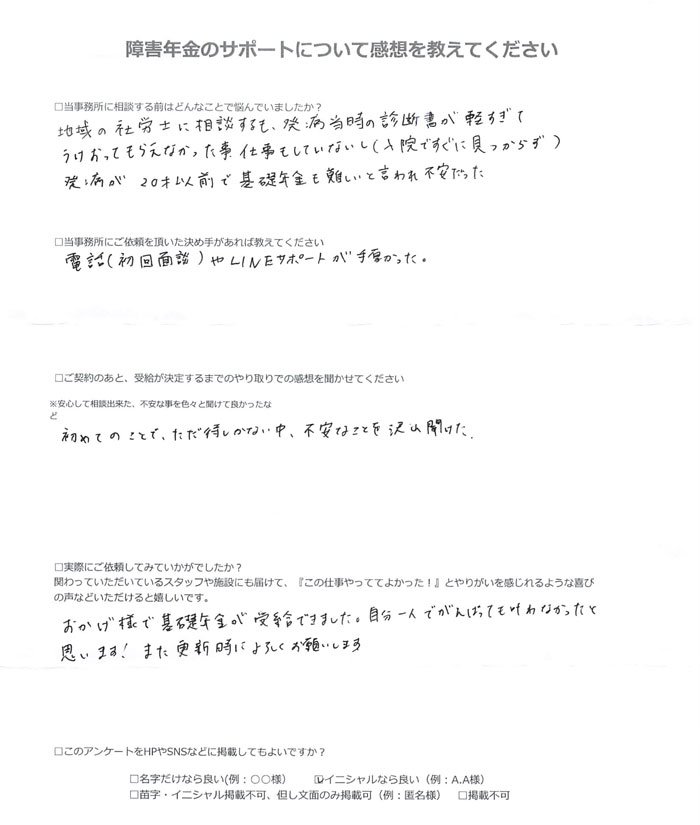 障害年金のサポートについて感想を教えてください
□当事務所に相談する前はどんなことで悩んでいましたか？
地域の社労士に相談するも、発病当時の診断書が軽すぎて
うけおってもらえなかった事 仕事もしていないし(入院ですぐに見つからず)
発病が 20才以前で基礎年金も難しいと言われ不安だった
□当事務所にご依頼を頂いた決め手があれば教えてください
電話(初回面談)やLINEサポートが手厚かった。
□ご契約のあと、受給が決定するまでのやり取りでの感想を聞かせてください
※安心して相談出来た、不安な事を色々と聞けて良かったな
ど
初めてのことで、ただ待しかない中、不安なことを沢山聞けた.
□実際にご依頼してみていかがでしたか？
関わっていただいているスタッフや施設にも届けて、『この仕事やっててよかった！』とやりがいを感じれるような喜び
の声などいただけると嬉しいです。
おかげ様で基礎年金が受給できました。自分一人でがんばっても叶わなかったと
思います! また更新時によろしくお願いします
□このアンケートをHPやSNSなどに掲載してもよいですか？
□名字だけなら良い(例：〇〇様) ☑イニシャルなら良い（例：A.A様）
□苗字・イニシャル掲載不可、但し文面のみ掲載可（例：匿名様） □掲載不可